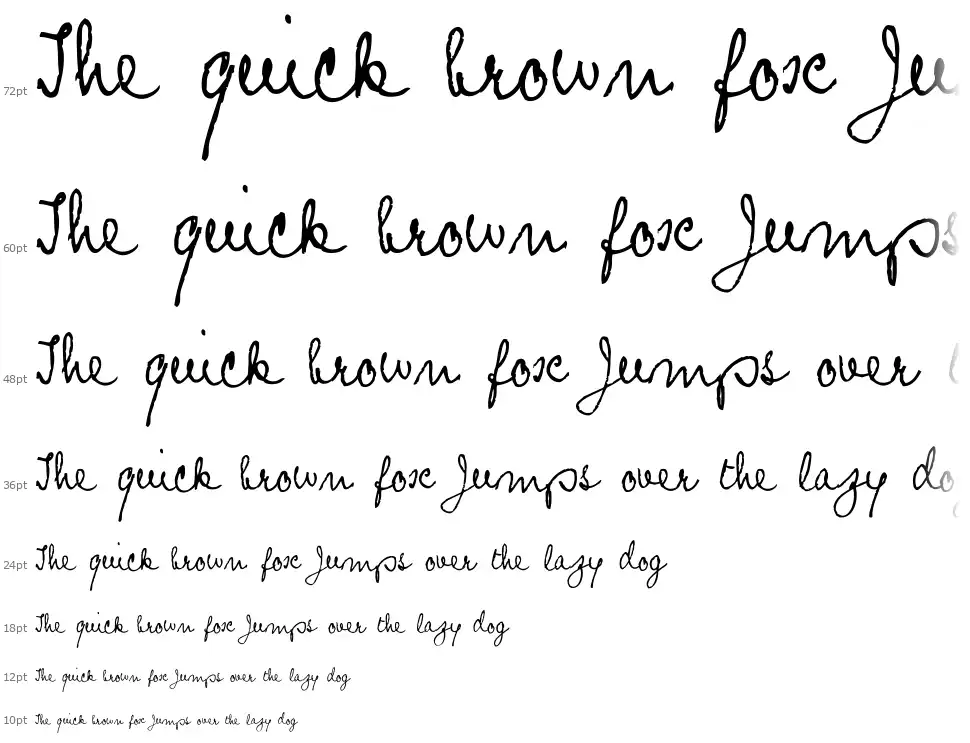 72pt The quick brown fox Ju
60pt The quick brown fox Jumps
48pt The quick brown fox Jumps over
36pt The quick brown fox Jumps over the lazy do
24pt The quick brown fox Jumps over the lazy dog
18pt The quick brown fox Jumps over the lazy dog
12pt The quick brown fox Jumps over the lazy dog
10pt The quick brown fox Jumps over the lazy dog